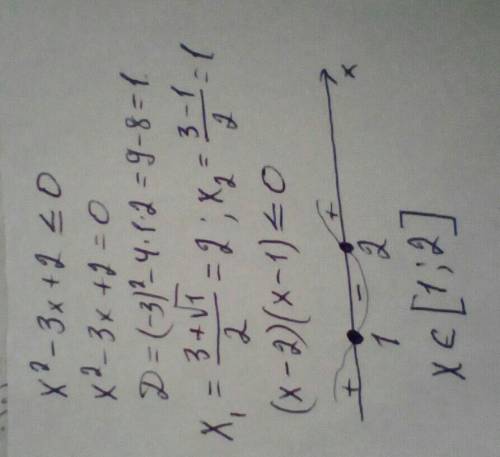 x² - 3x + 2 ≤ 0
x² - 3x + 2 = 0
D = (-3)² - 4·1·2 = 9 - 8 = 1
x₁ = (3+√1)/2 = 2 ; x₂ = (3-1)/2 = 1
(x-2)(x-1) ≤ 0
+ - + x
1 2
x ∈ [1 ; 2]